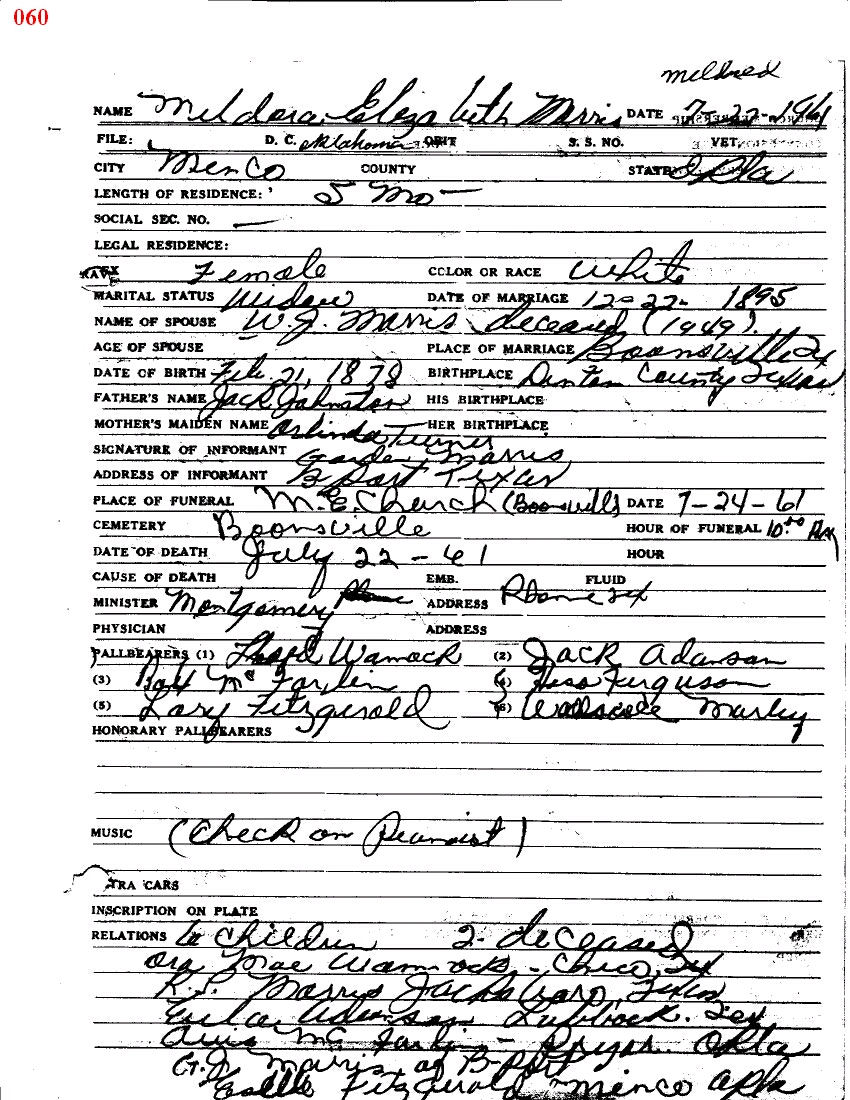 060
mildred
NAME Meldora Elizabeth Morris DATE 7-22-1961
FILE: D. C. Oklahoma OBIT S. S. NO. VET.
CITY Menco COUNTY STATE Okla
LENGTH OF RESIDENCE: 5 Mo
SOCIAL SEC. NO. —
LEGAL RESIDENCE:
Female COLOR OR RACE White
MARITAL STATUS Widow DATE OF MARRIAGE 12-22- 1895
NAME OF SPOUSE W. J. Morris deceased (1949).
AGE OF SPOUSE PLACE OF MARRIAGE Boonsville Tex
DATE OF BIRTH Feb. 21, 1878 BIRTHPLACE Denton County Texas
FATHER'S NAME Jack Johnston HIS BIRTHPLACE
MOTHER'S MAIDEN NAME Orlinda Turner HER BIRTHPLACE
SIGNATURE OF INFORMANT Garden Morris
ADDRESS OF INFORMANT B. port Texas
PLACE OF FUNERAL M. E. Church (Boonsville) DATE 7-24-61
CEMETERY Boonsville HOUR OF FUNERAL 10:00 AM
DATE OF DEATH July 22-61 HOUR
CAUSE OF DEATH EMB. FLUID
MINISTER Montgomery ADDRESS Rhome Tex
PHYSICIAN ADDRESS
PALLBEARERS (1) Wamack (2) Jack Adamson
(3) McFarlin (4) Ferguson
(5) Lary Fitzgerald (6) Marley
HONORARY PALLBEARERS
MUSIC (Check on Peanist)
TRA CARS
INSCRIPTION ON PLATE
RELATIONS children 2 deceased
Ora Mae Wammock - Chico, Tex
R. P. Morris Jacksboro, Texas
Adamson Lubbock. Tex
McFarlin - Okla
Morris of B-port
Estelle Fitzgerald Menco Okla